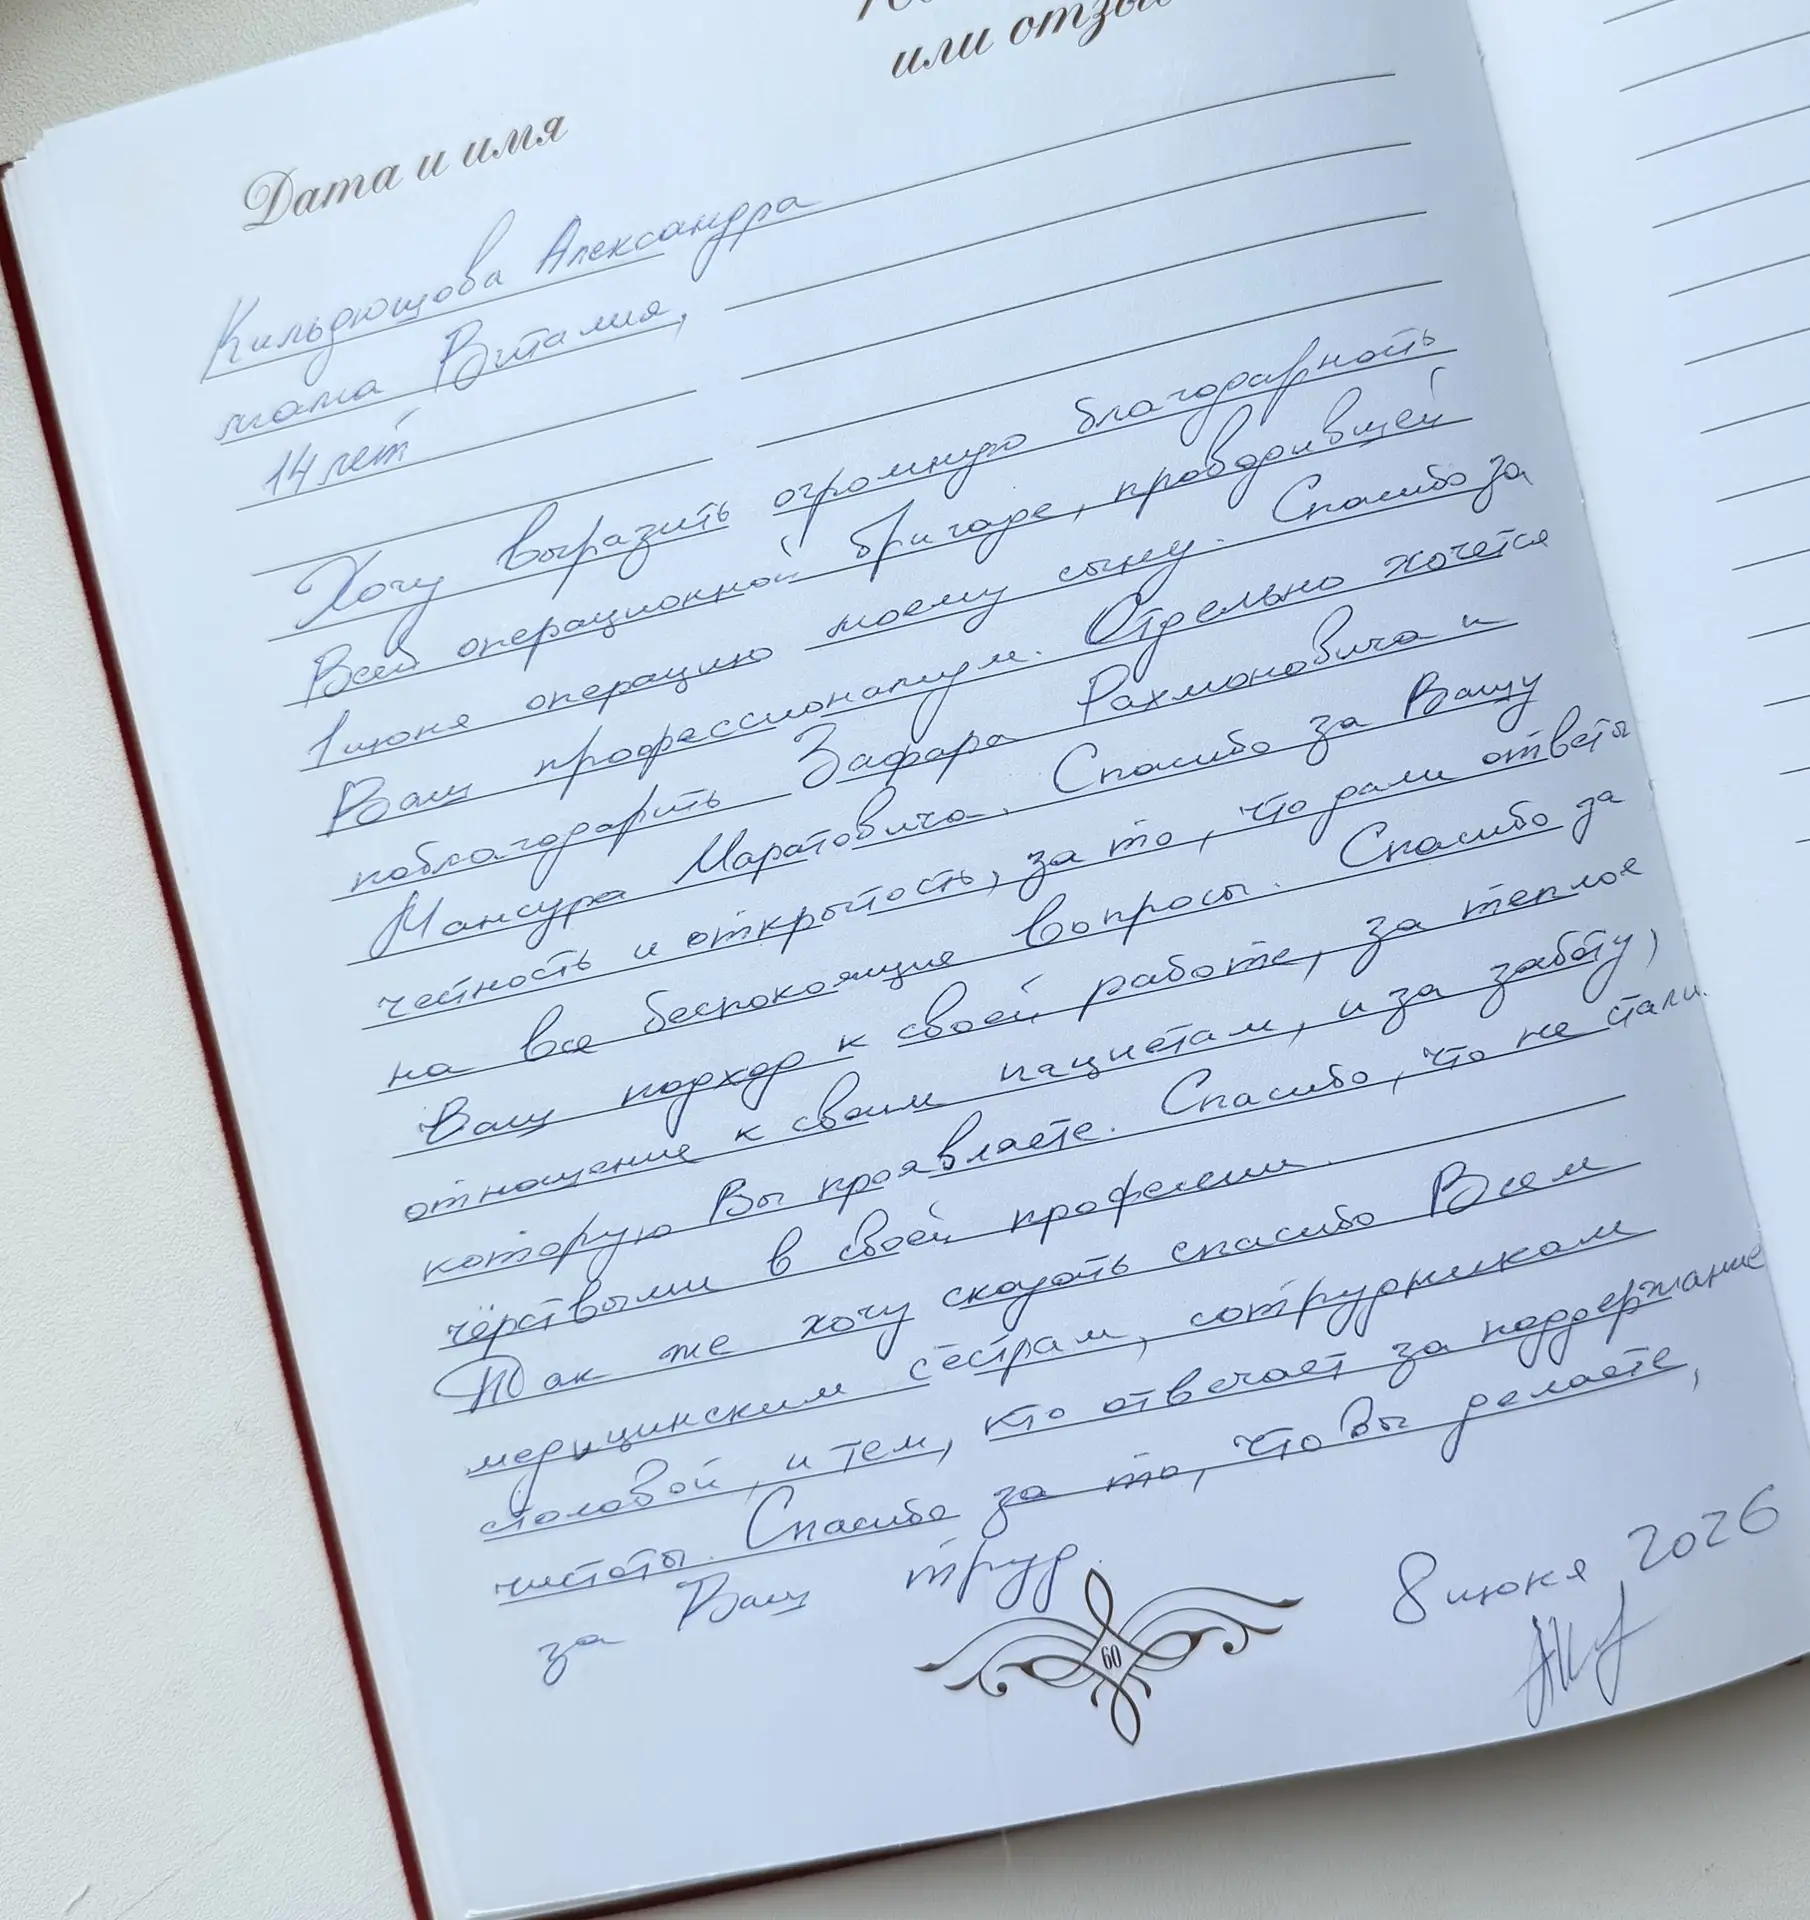 или отзы
Дата и имя
Кильдющова Александра
мама Виталия,
14 лет
Хочу выразить огромную благодарность
Всей операционной бригаде, проводившей
1 июня операцию моему сыну. Спасибо за
Ваш профессионализм. Отдельно хочется
поблагодарить Зафара Рахмоновича и
Мансура Маратовича. Спасибо за Вашу
честность и открытость, за то, что дали ответы
на все беспокоящие вопросы. Спасибо за
Ваш подход к своей работе, за теплое
отношение к своим пациетам, и за заботу,
которую Вы проявляете. Спасибо, что не стали
чёрствыми в своей професии.
Так же хочу сказать спасибо Всем
медицинским сёстрам, сотрудникам
столовой, и тем, кто отвечает за поддержание
чистоты. Спасибо за то, что Вы делаете,
за Ваш труд.
8 июня 2026
60